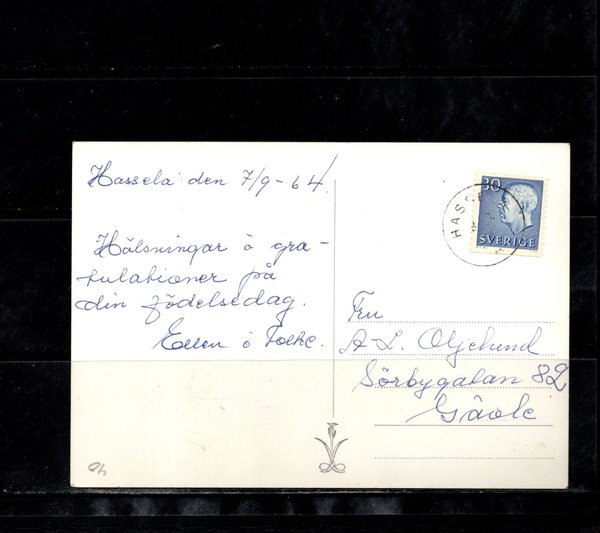 Hassela den 7/9-64.
Hälsningar o gra-
tulationer på
din födelsedag.
Ellen o Folke.
30
SVERIGE
HASSE
Fru
A-L. Oljelund
Sörbygatan 82
Gävle